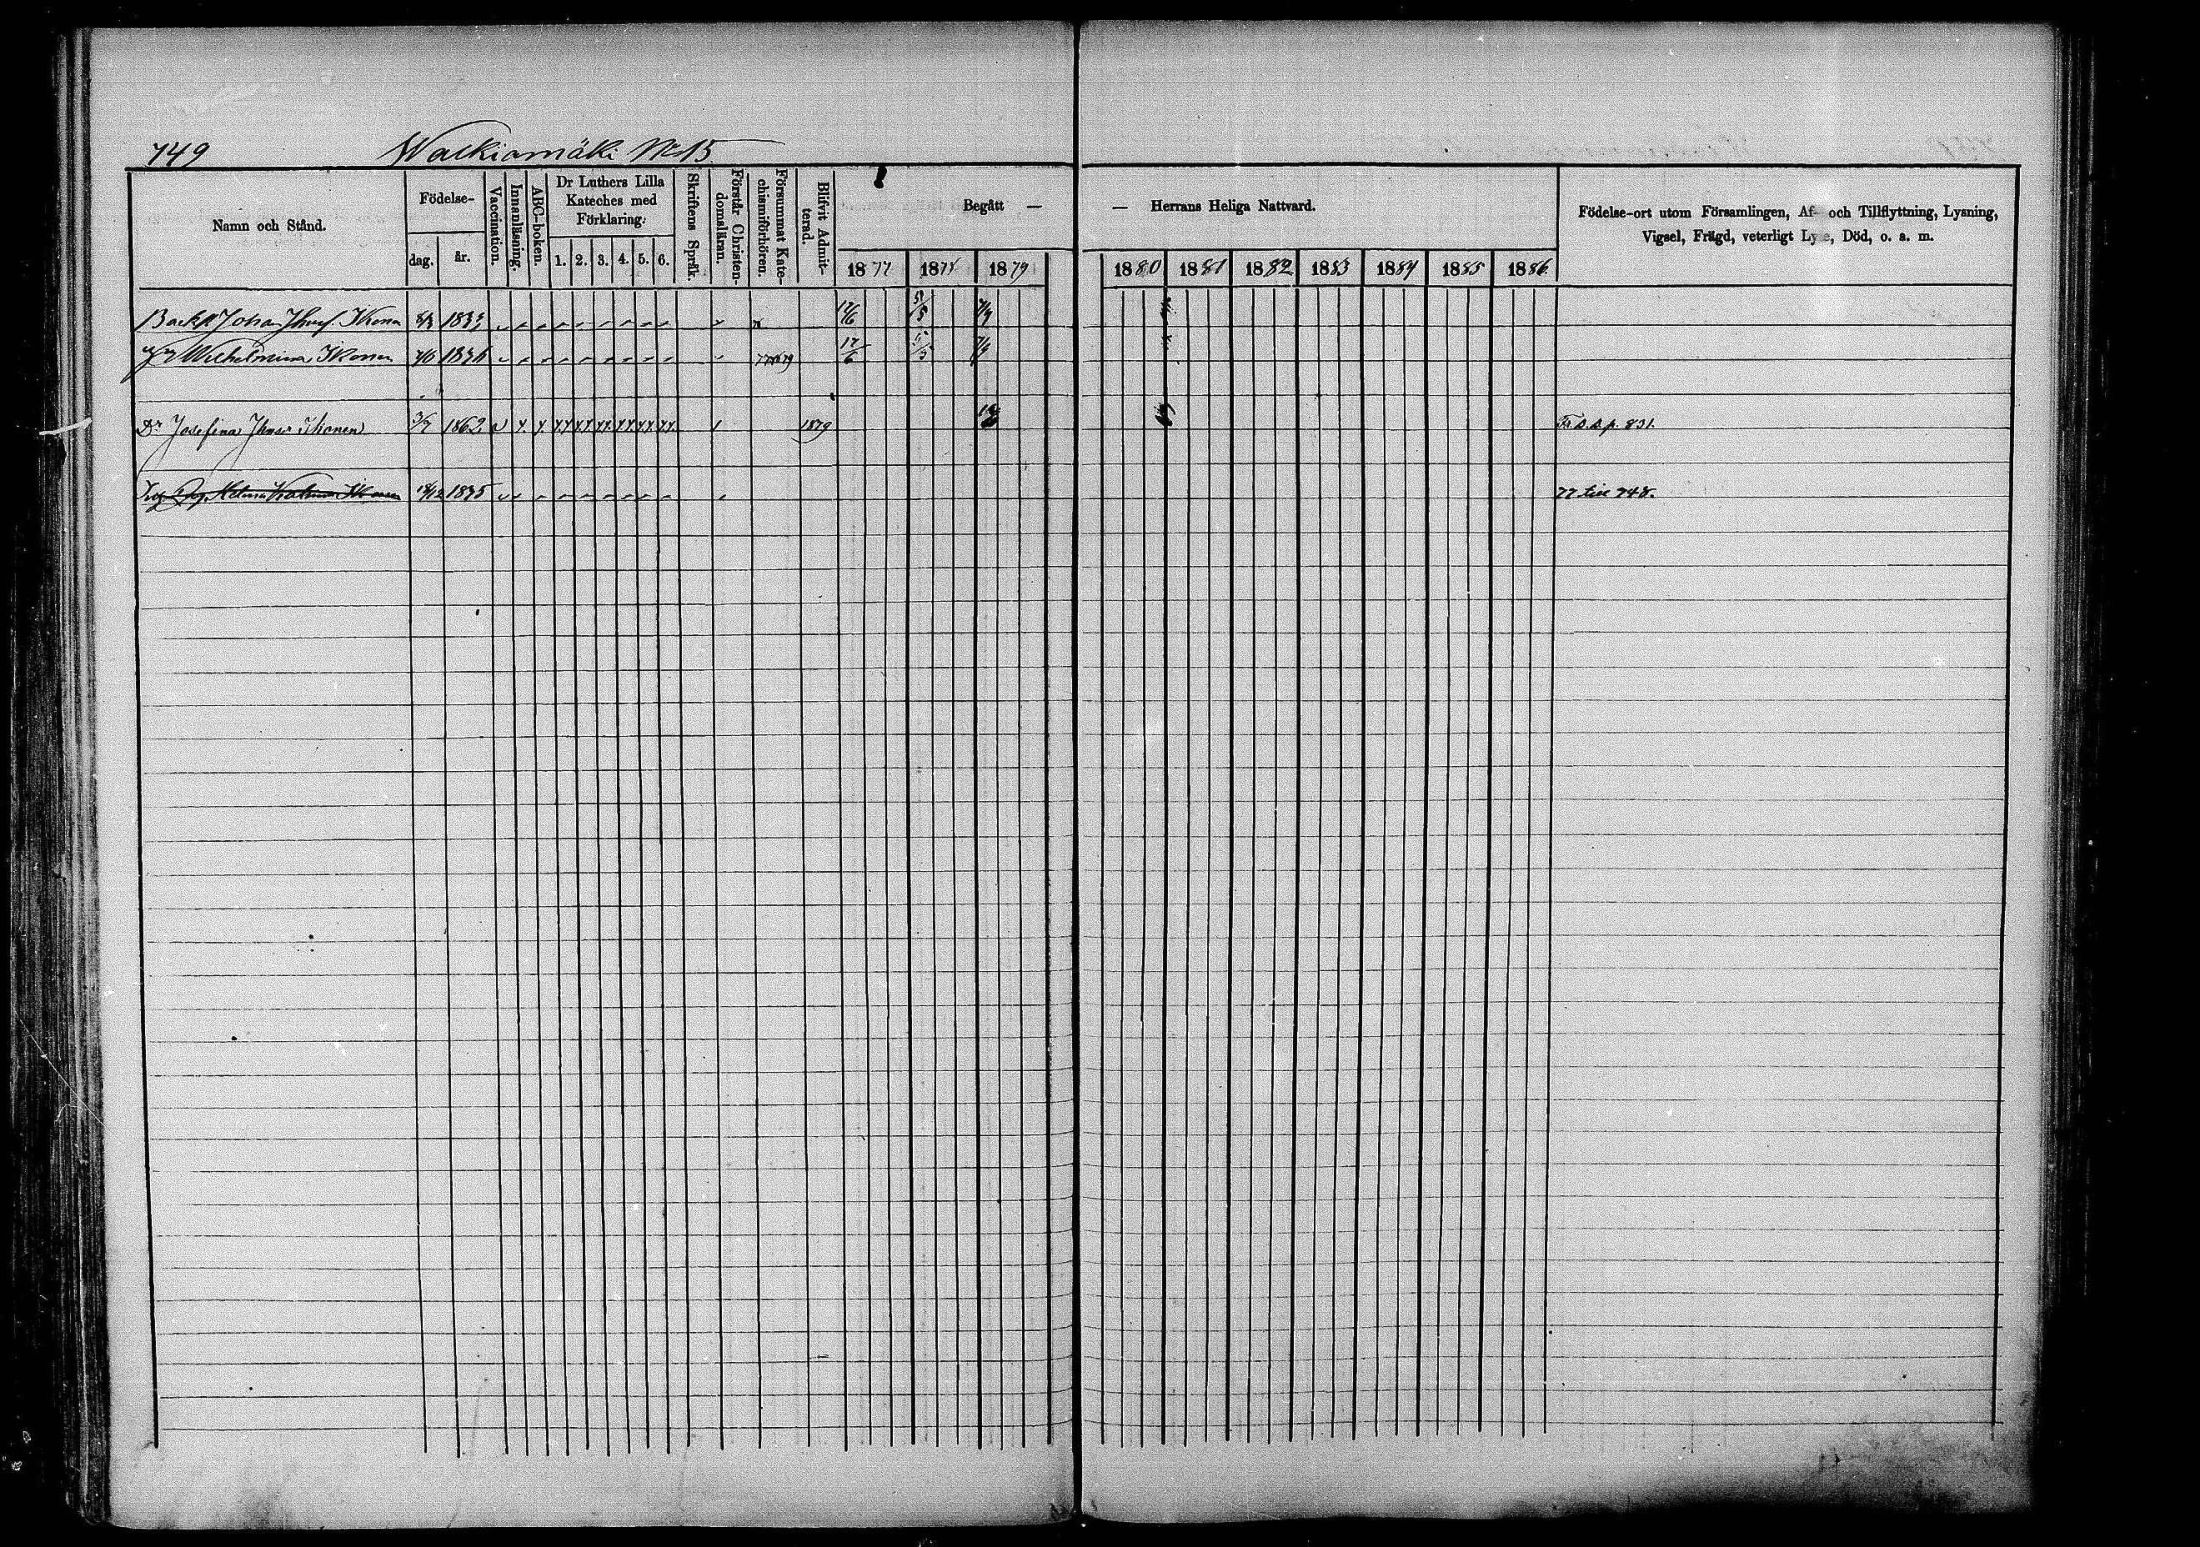 749 Walkiamäki No 15
Namn och Stånd.
Födelse-
dag. år.
Vaccination.
Innanläsning.
ABC-boken.
Dr Luthers Lilla
Kateches med
Förklaring.
1. 2. 3. 4. 5. 6.
Skriftens Språk.
Förstår Christen-
domsläran.
Försummat Kate-
chismiförhören.
Blifvit Admit-
terad.
Begått — — Herrans Heliga Nattvard.
1877 1878 1879 1880 1881 1882 1883 1884 1885 1886
Födelse-ort utom Församlingen, Af- och Tillflyttning, Lysning,
Vigsel, Frägd, veterligt Lyte, Död, o. s. m.
Johan Ikonen 1833 17/6 5/5
Wilhelmina Ikonen 1836 17/6 5/5
Dr Josefina Ikonen 3/7 1862 1879 Fr s.s.p. 831.
Ikonen 1835 77 till 748.